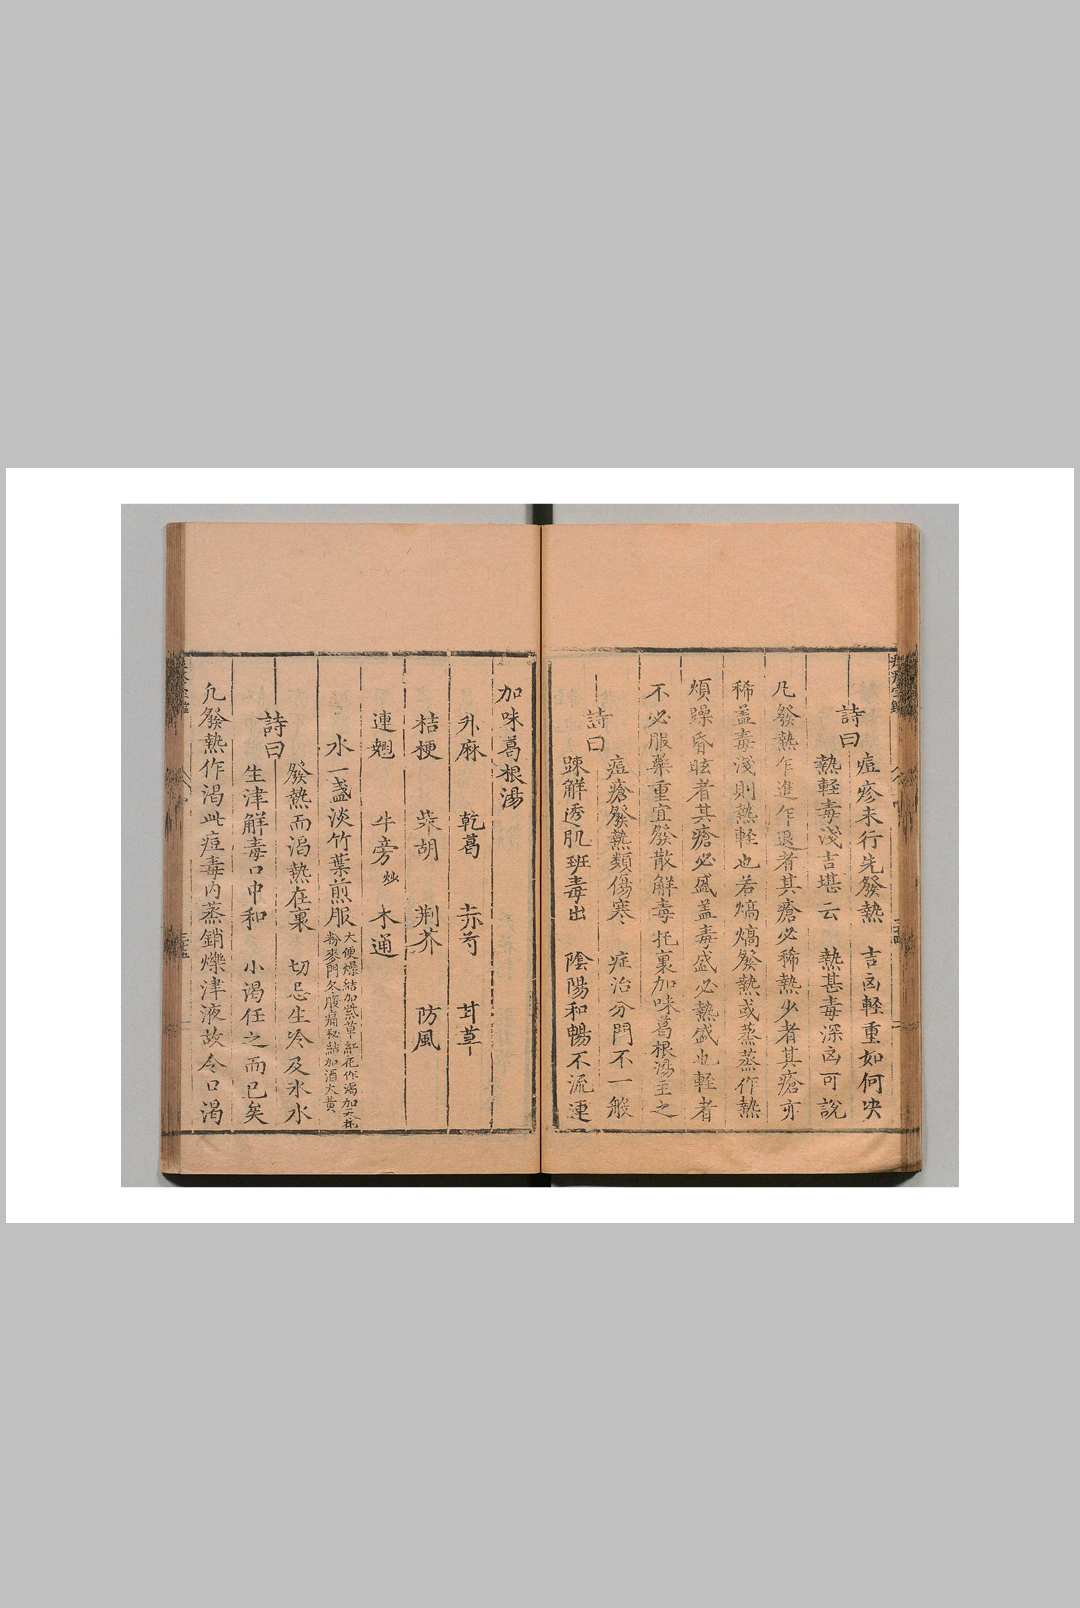 詩曰
痘疹未行先發熱　吉凶輕重如何决
熱輕毒淺吉堪云　熱甚毒深凶可說
凡發熱乍進乍退者其瘡必稀熱少者其瘡亦
稀盖毒淺則熱輕也若熇熇發熱或蒸蒸作熱
煩躁昏眩者其瘡必盛盖毒盛必熱盛也輕者
不必服藥重宜發散解毒托裏加味葛根湯主之
詩曰
痘瘡發熱類傷寒　症治分門不一般
踈解透肌班毒出　隂陽和暢不流連
加味葛根湯
升麻　乾葛　赤芍　甘草
桔梗　柴胡　荆芥　防風
連翹　牛旁炒　木通
水一盞淡竹葉煎服
大便燥結加紫草紅花作渴加天花
粉麥門冬腹痛秘結加酒大黄
詩曰
發熱而渴熱在裏　切忌生冷及氷水
生津解毒口中和　小渴任之而已矣
凢發熱作渴此痘毒内蒸銷爍津液故令口渴